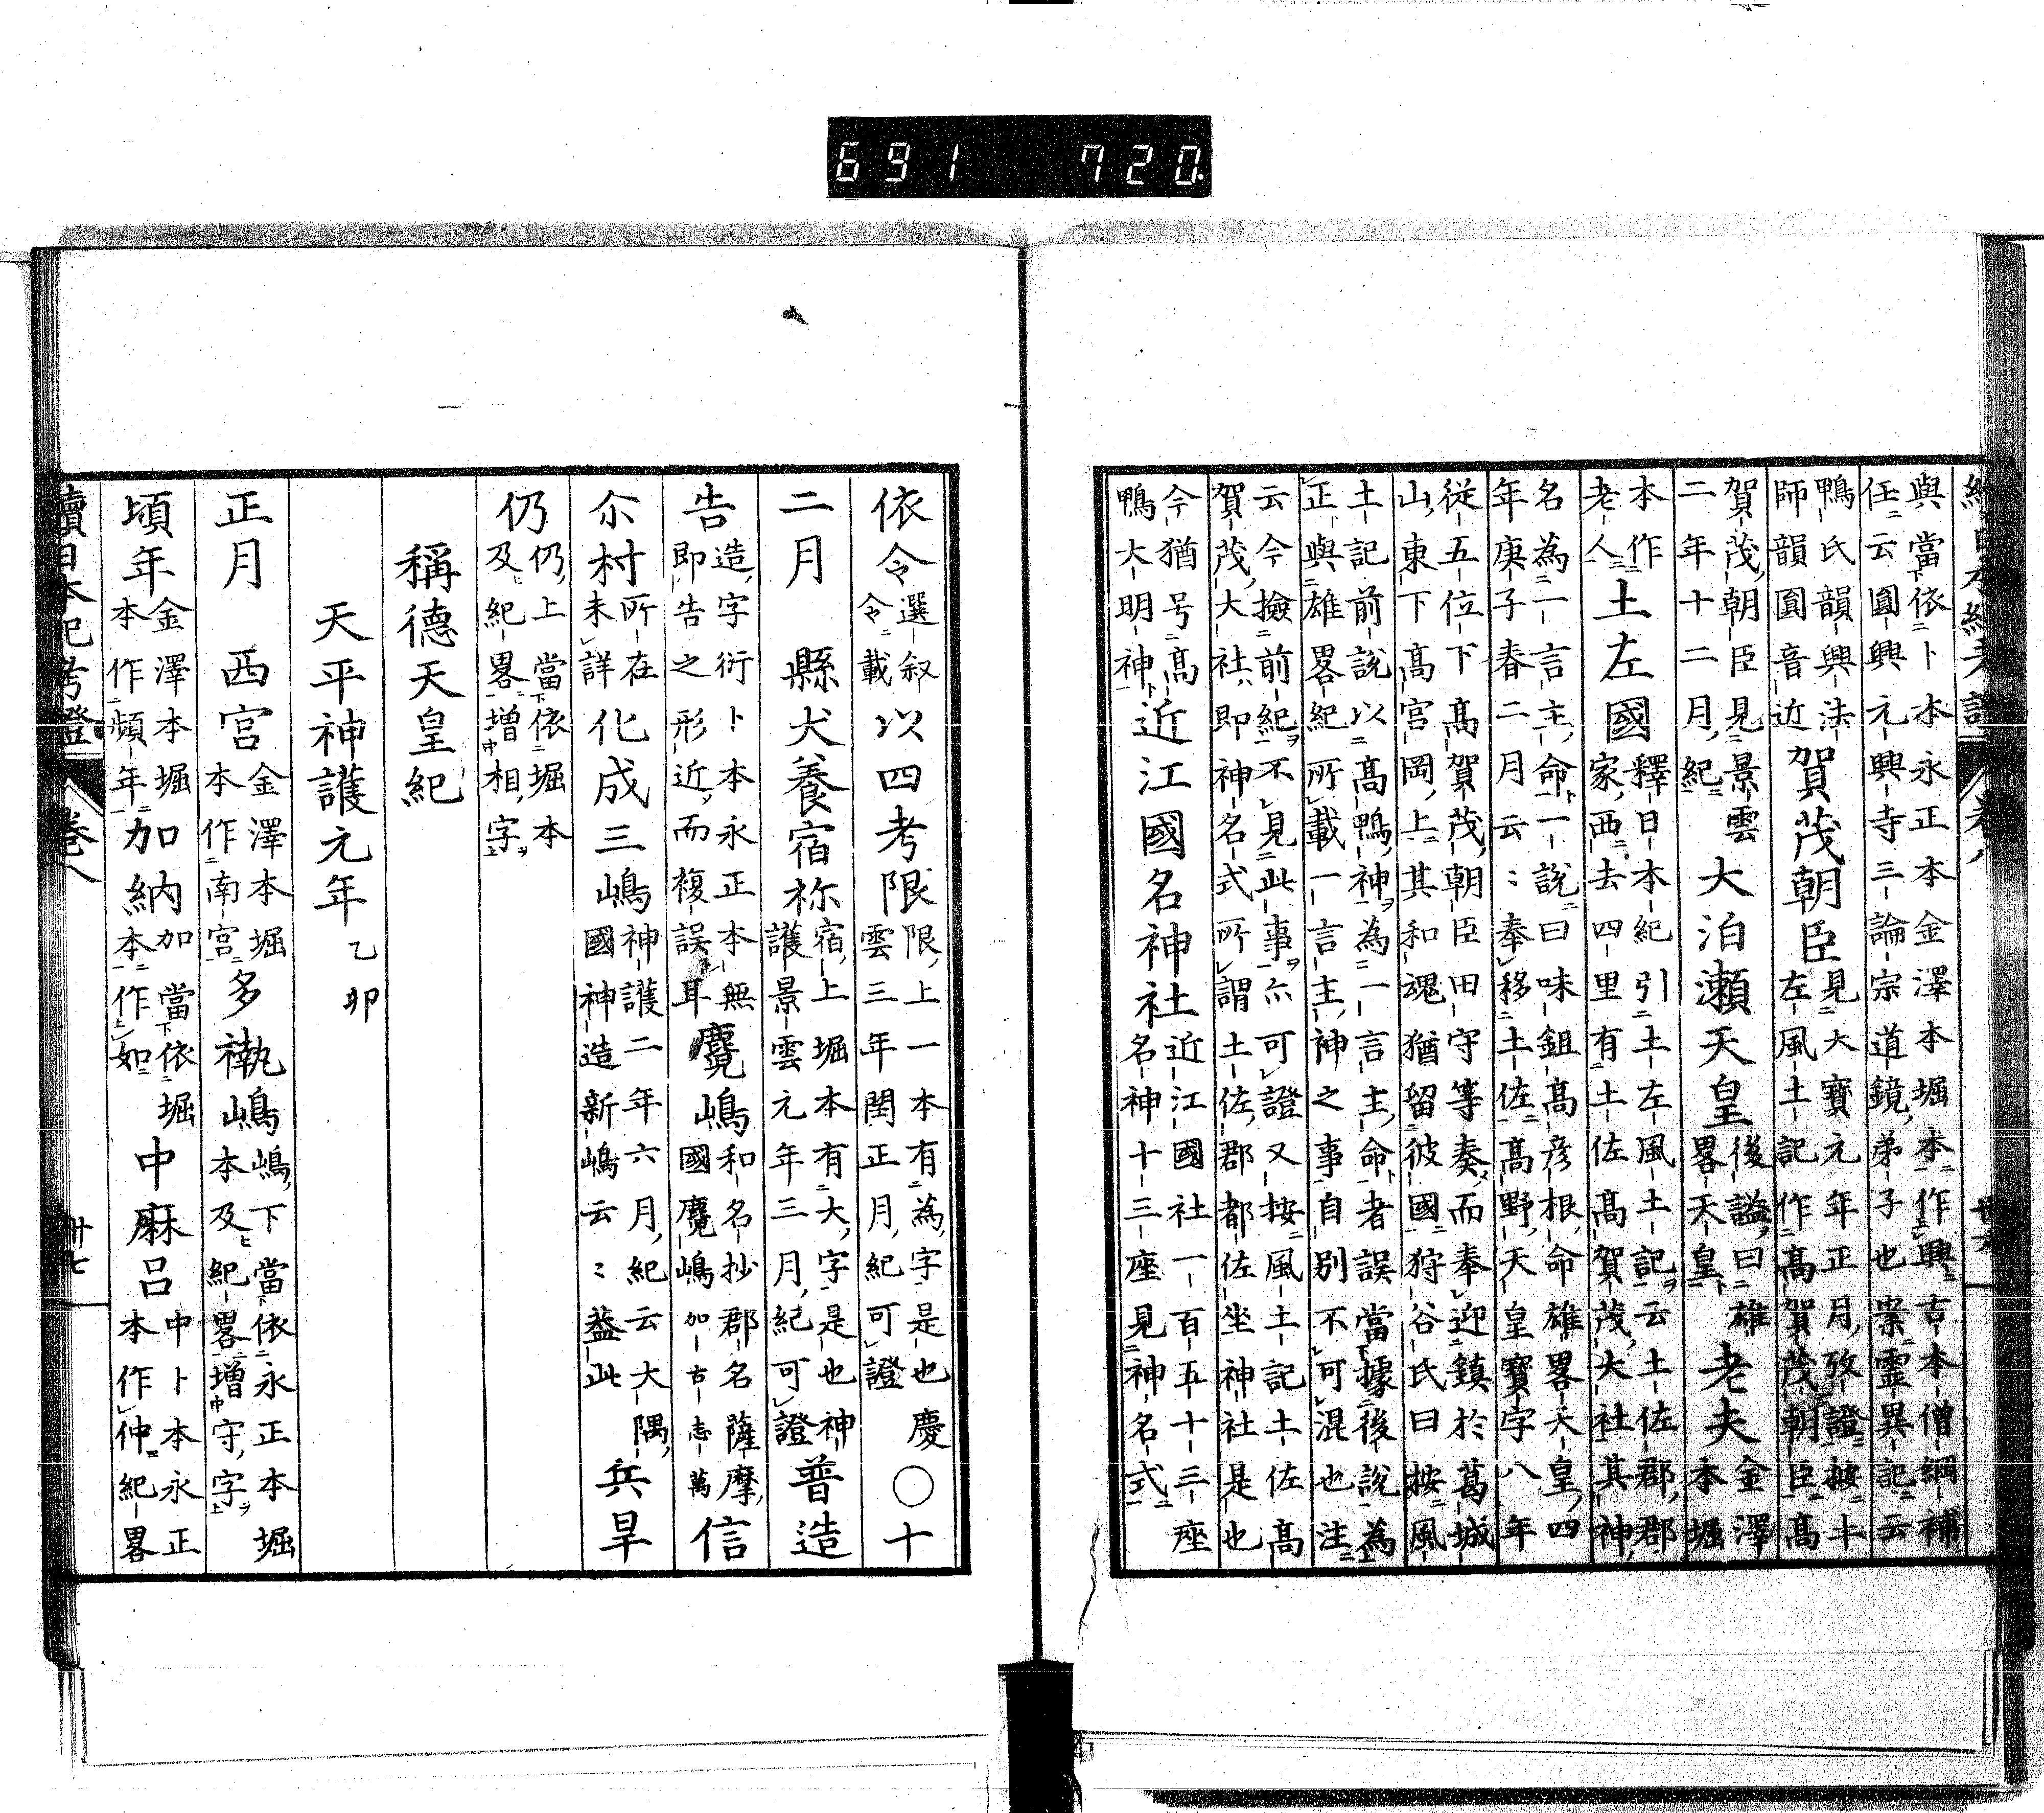 與當依卜本永正本金澤本堀本作興吉本僧綱補
任云圓興元興寺三論宗道鏡弟子也案霊異記云
鴨氏韻興法師韻圓音近賀茂朝臣見大寶元年正月攷證按土左風土記作高賀茂朝臣高
賀茂朝臣見景雲二年十二月紀大泊瀬天皇後謚曰雄畧天皇老夫金澤本堀
本作老人土左國釋日本紀引土左風土記云土佐郡郡家西去四里有土佐高賀茂大社其神
名為一言主命一説曰味鉏高彦根命雄畧天皇四
年庚子春二月云〻奉移土佐高野天皇寳字八年
從五位下高賀茂朝臣田守等奏而奉迎鎮於葛城
山東下高宮岡上其和魂猶留彼國狩谷氏曰按風
土記前説以高鴨神為一言主命者誤當據後説為
正與雄畧紀所載一言主神之事自別不可混也注
云今撿前紀不見此事亦可證又按風土記土佐高
賀茂大社即神名式所謂土佐郡都佐坐神社是也
今猶号高鴨大明神近江國名神社近江國社一百五十三座名神十三座見神名式
依令選叙令載以四考限限上一本有為字是也慶雲三年閏正月紀可證〇十
二月 縣犬養宿祢宿上堀本有大字是也神護景雲元年三月紀可證普造
告造字衍卜本永正本無即告之形近而複誤耳麑嶋和名抄郡名薩摩國麑嶋加古志萬信
尒村所在未詳化成三嶋神護二年六月紀云大隅國神造新嶋云〻葢此兵旱
仍仍上當依堀本及紀畧増相字
稱德天皇紀
天平神護元年乙卯
正月 西宮金澤本堀本作南宮多褹嶋嶋下當依永正本堀本及紀畧増守字
頃年金澤本堀本作頻年加納加當依堀本作如中麻呂中卜本永正本作仲紀畧
續日本紀考證 卷八 卅七